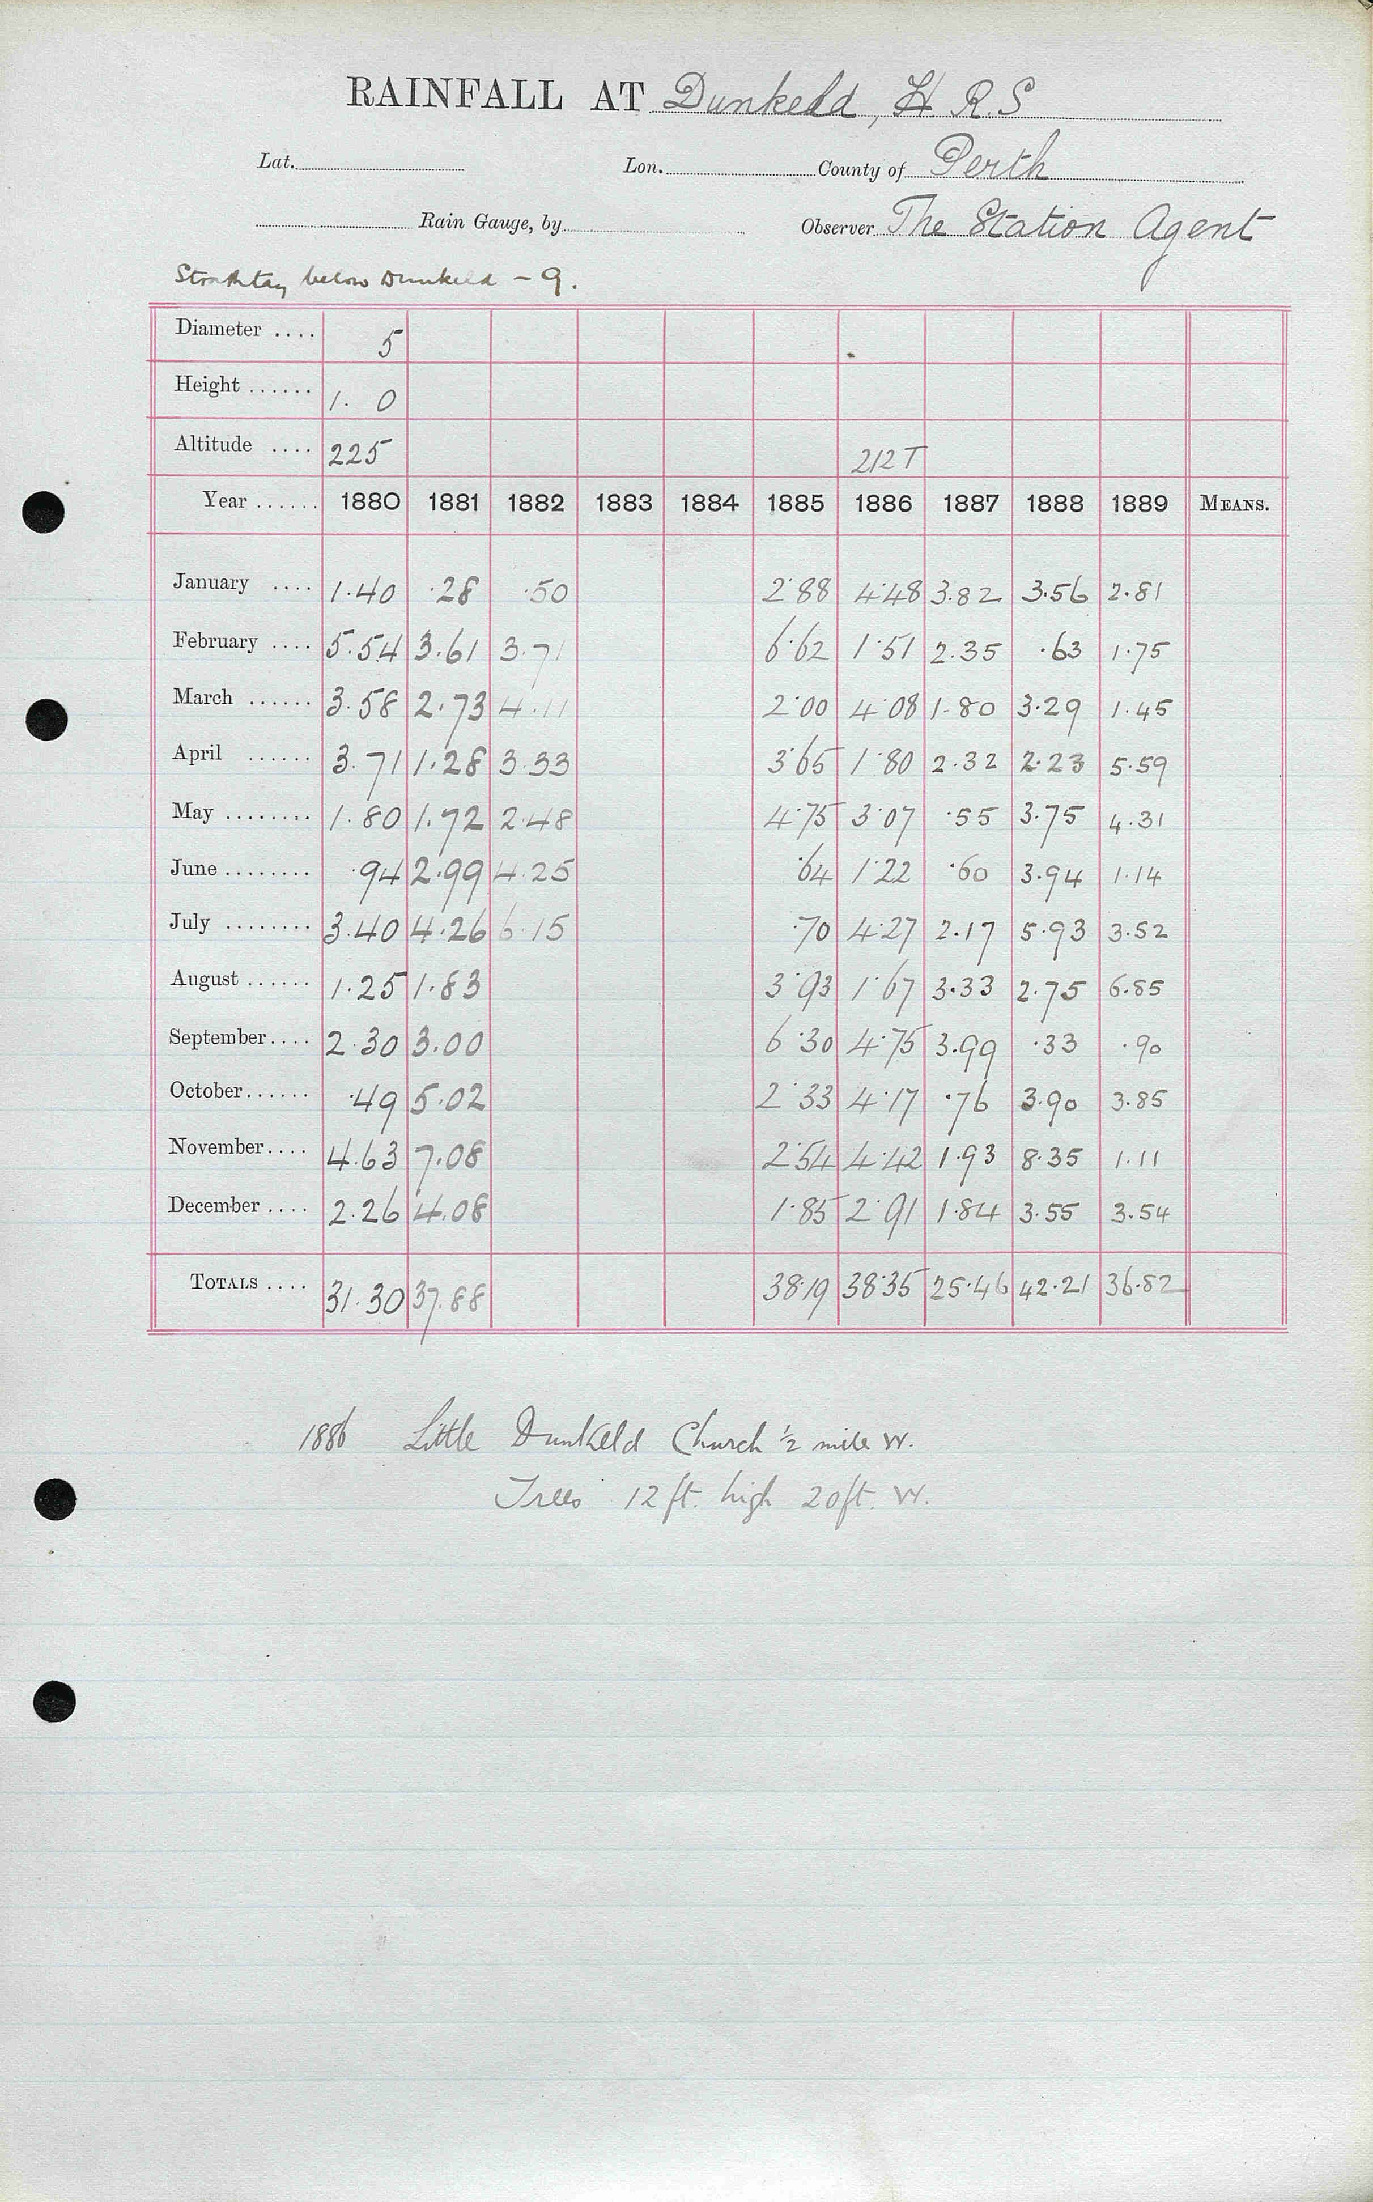 RAINFALL AT Dunkeld, H R.S
Lat. Lon. County of Perth
Rain Gauge, by Observer The Station Agent
Strathtay below Dunkeld - 9.
Diameter .... 5
Height ...... 1. 0
Altitude .... 225 212 T
Year ...... 1880 1881 1882 1883 1884 1885 1886 1887 1888 1889 MEANS.
January .... 1.40 .28 .50 2.88 4.48 3.82 3.56 2.81
February .... 5.54 3.61 3.71 6.62 1.51 2.35 .63 1.75
March ...... 3.58 2.73 4.11 2.00 4.08 1.80 3.29 1.45
April ...... 3.71 1.28 3.33 3.65 1.80 2.32 2.23 5.59
May ........ 1.80 1.72 2.48 4.75 3.07 .55 3.75 4.31
June ........ .94 2.99 4.25 .64 1.22 .60 3.94 1.14
July ........ 3.40 4.26 6.15 .70 4.27 2.17 5.93 3.52
August ...... 1.25 1.83 3.93 1.67 3.33 2.75 6.85
September.... 2.30 3.00 6.30 4.75 3.99 .33 .90
October...... .49 5.02 2.33 4.17 .76 3.90 3.85
November.... 4.63 7.08 2.54 4.42 1.93 8.35 1.11
December.... 2.26 4.08 1.85 2.91 1.84 3.55 3.54
TOTALS .... 31.30 37.88 38.19 38.35 25.46 42.21 36.82
1886 Little Dunkeld Church ½ mile W.
Trees 12 ft. high 20 ft. W.